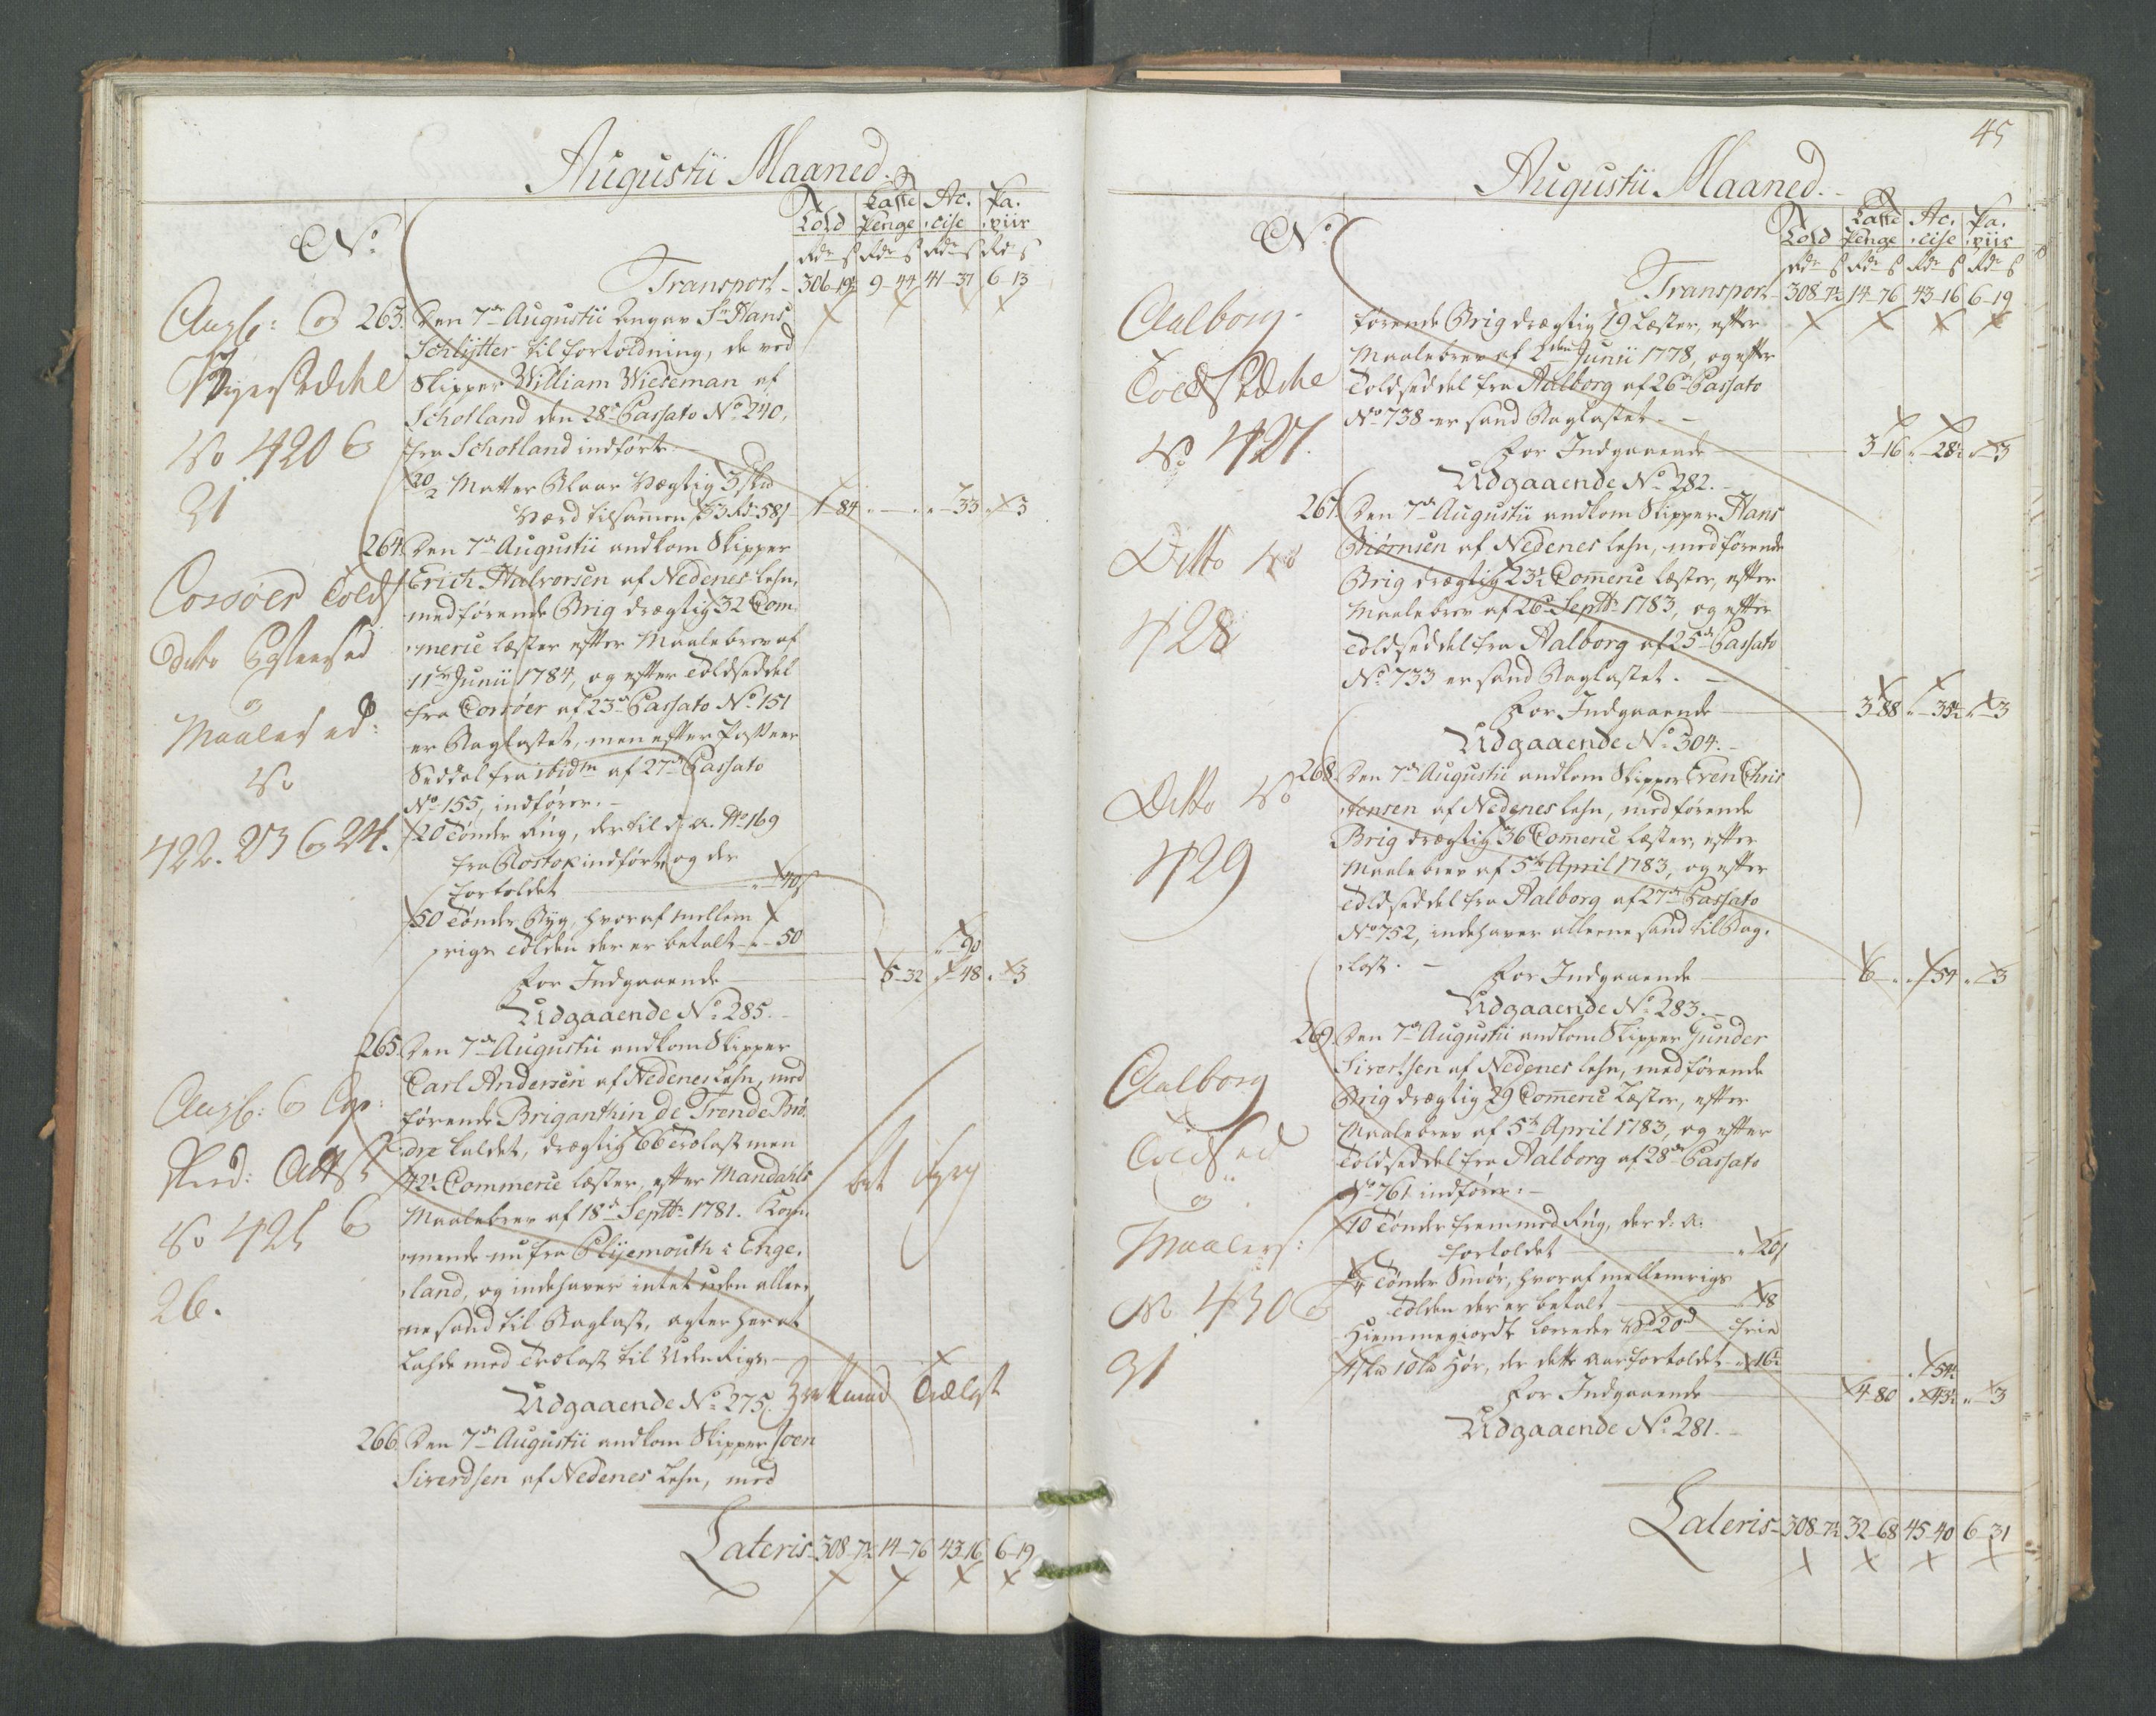 Augustii Maaned.
No
Told
Rdr ß
Lasse
Penge
Rdr ß
Ac.
cise
Rdr ß
Pa.
piir
Rd ß
Transport 306-19½ 9-44 41-31 6-13
Angb: og
Vejersedchel
No 420 og
21
263. Den 7de Augustii Angav Sr Hans
Schlÿtter til fortoldning, de ved
Skipper William Wieseman af
Schotland den 28de Passato No 240,
fra Schotland indførte
20/2 Matter Blaar Vægtig 5 sk
Værd tilsammen 53 Rd 58 ß 1-84 " - " " - 33 " - 3
Corsøer Told
ditto
og
Maaleсed:
No
422. 23 og 24.
264. Den 7de Augustii ankom Skipper
Erich Halvorsen af Nedenes Lehn,
medførende Brig drægtig 32 Com
merce læster efter Maalebrev af
11te Junii 1784, og efter Toldseddel
fra Corsøer af 23de Passato No 151
er Baglastet, men efter Passeer
Seddel fra ibidm af 27de Passato
No 155, indfører.
20 Tønder Rug, der til d. a. No 169
fra Rostok indført og der
fortoldet " 40 ß
50 Tønder Byg, hvoraf mellem
rigs Tolden der er betalt " - 50
" - 90
For Indgaaende 5-32 " - 48 " - 3
Udgaaende No 285.
Angb: og
No 425 og
26.
265. Den 7de Augustii ankom Skipper
Carl Andersen af Nedenes Lehn, med
førende Briganthin de Trende Brø
dre kaldet, drægtig 66 Trælast men
42½ Commerce læster, efter Mandahls
Maalebrev af 18de Septbr 1781. Kom
mende nu fra Plÿemouth i Enge
land, og indehaver intet uden allee
ne sand til Baglast, agter herat
Lahde med Trælast til Uden Rigs.
Udgaaende No 275. Trælast
266. Den 7de Augustii ankom Skipper Joen
Siverdsen af Nedenes Lehn, med
Lateris 308-7½ 14-76 43-16 6-19
45
Augustii Maaned.
No
Told
Rdr ß
Lasse
Penge
Rdr ß
Ac.
cise
Rdr ß
Pa.
piir
Rdr ß
Transport 308-7½ 14-76 43-16 6-19
Aalborg
Told Sedchel
No 427.
førende Brig drægtig 19 Læster, efter
Maalebrev af 2den Junii 1778, og efter
Toldseddel fra Aalborg af 26de Passato
No 738 er sand Baglastet.
For Indgaaende 3-16 " - 28½ " - 3
Udgaaende No 282.
Ditto No
428
267. Den 7de Augustii ankom Skipper Hans
Biørnsen af Nedenes Lehn, medførende
Brig drægtig 23½ Commerce læster, efter
Maalebrev af 26de Septbr 1783, og efter
Toldseddel fra Aalborg af 25de Passato
No 733 er sand Baglastet.
For Indgaaende 3-88 " - 35½ " - 3
Udgaaende No 304.
Ditto No
429
268. Den 7de Augustii ankom Skipper Even Chris
tensen af Nedenes Lehn, medførende
Brig drægtig 36 Commerce læster, efter
Maalebrev af 5te April 1783, og efter
Toldseddel fra Aalborg af 27de Passato
No 752, indehaver alleene sand til Bag
last.
For Indgaaende 6 - " " - 54 " - 3
Udgaaende No 283.
Aalborg
Toldsed
og
Maalers:
No 430 og
31
269. Den 7de Augustii ankom Skipper Gunder
Sivertsen af Nedenes Lehn, medførende
Brig drægtig 29 Commerce Læster, efter
Maalebrev af 5te April 1783, og efter
Toldseddel fra Aalborg af 28de Passato
No 761 indfører:
10 Tønder fremmed Rug, der d. a.
fortoldet " 20 ß
Tønder Smør, hvoraf mellemrigs
Tolden der er betalt " 18
Hiemmegiordt Lærreder 20 frie
10 Hør, der dette Aar fortoldet " 16½
" 54½
For Indgaaende 4-80 " 43½ " - 3
Udgaaende No 281.
Lateris 308-7½ 32-68 45-40 6-31